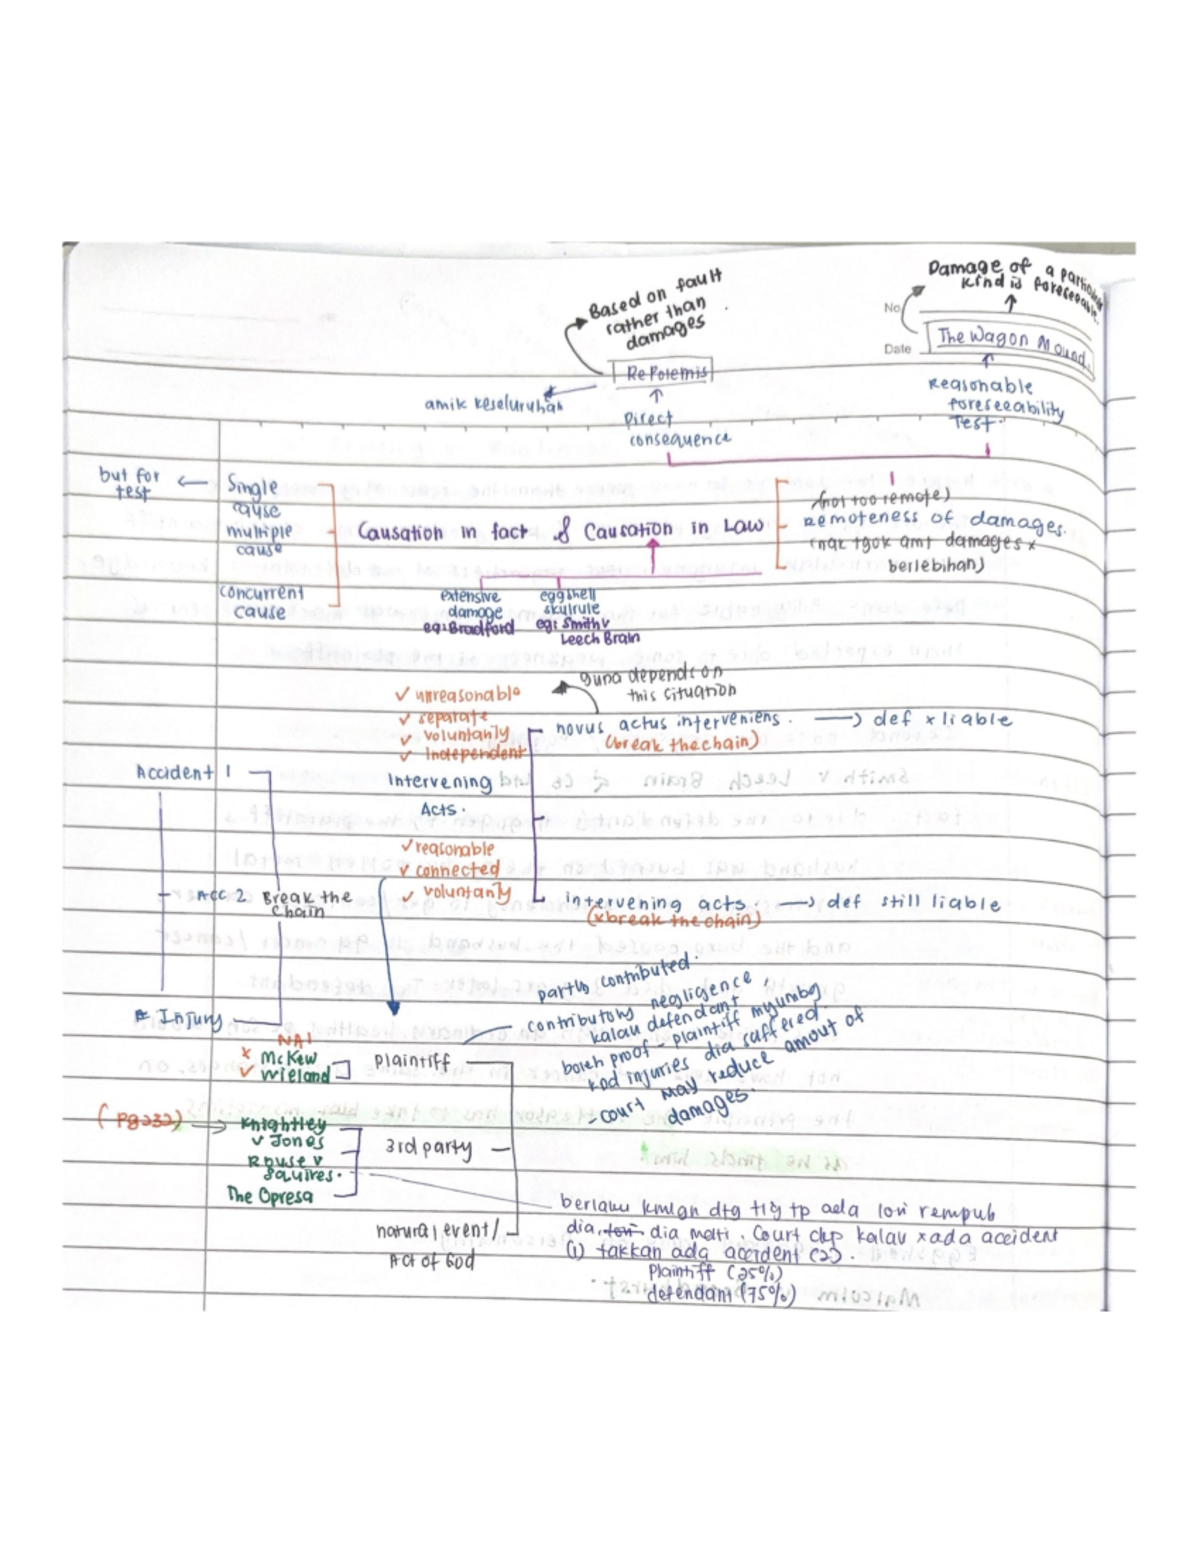 Damage of a particular
kind is foreseeable.
Based on fault
rather than
damages
No.
The Wagon Mound
Date
Re Polemis
Reasonable
foreseeability
Test.
amik keseluruhan
Direct
consequence
but for
test
Single
cause
multiple
cause
concurrent
cause
Causation in fact & Causation in Law
(not too remote)
Remoteness of damages.
(nak tgok amt damages x
berlebihan)
extensive
damage
eg: Bradford
eggshell
skulrule
eg: Smith v
Leech Brain
guna depends on
this situation
✓ unreasonable
✓ separate
✓ voluntarily
✓ Independent
novus actus interveniens. → def x liable
(break the chain)
Accident 1
Intervening
Acts.
✓ reasonable
✓ connected
✓ voluntarily
Acc 2
Break the
chain
intervening acts → def still liable
(x break the chain)
Injury
partly contributed.
contributory negligence,
kalau defendant
boleh proof - plaintiff
injuries dia suffered.
- court may reduce amount of
damages.
NAI
x McKew
✓ Wieland
plaintiff
(Pg232) → Knightley
v Jones
Rouse v
Squires.
The Opresa
3rd party
natural event/
Act of God
berlaku tp ada lori rempuh
dia lori dia mati. Court ckp kalau xada accident
(1) takkan ada accident (2).
Plaintiff (25%)
defendant (75%)